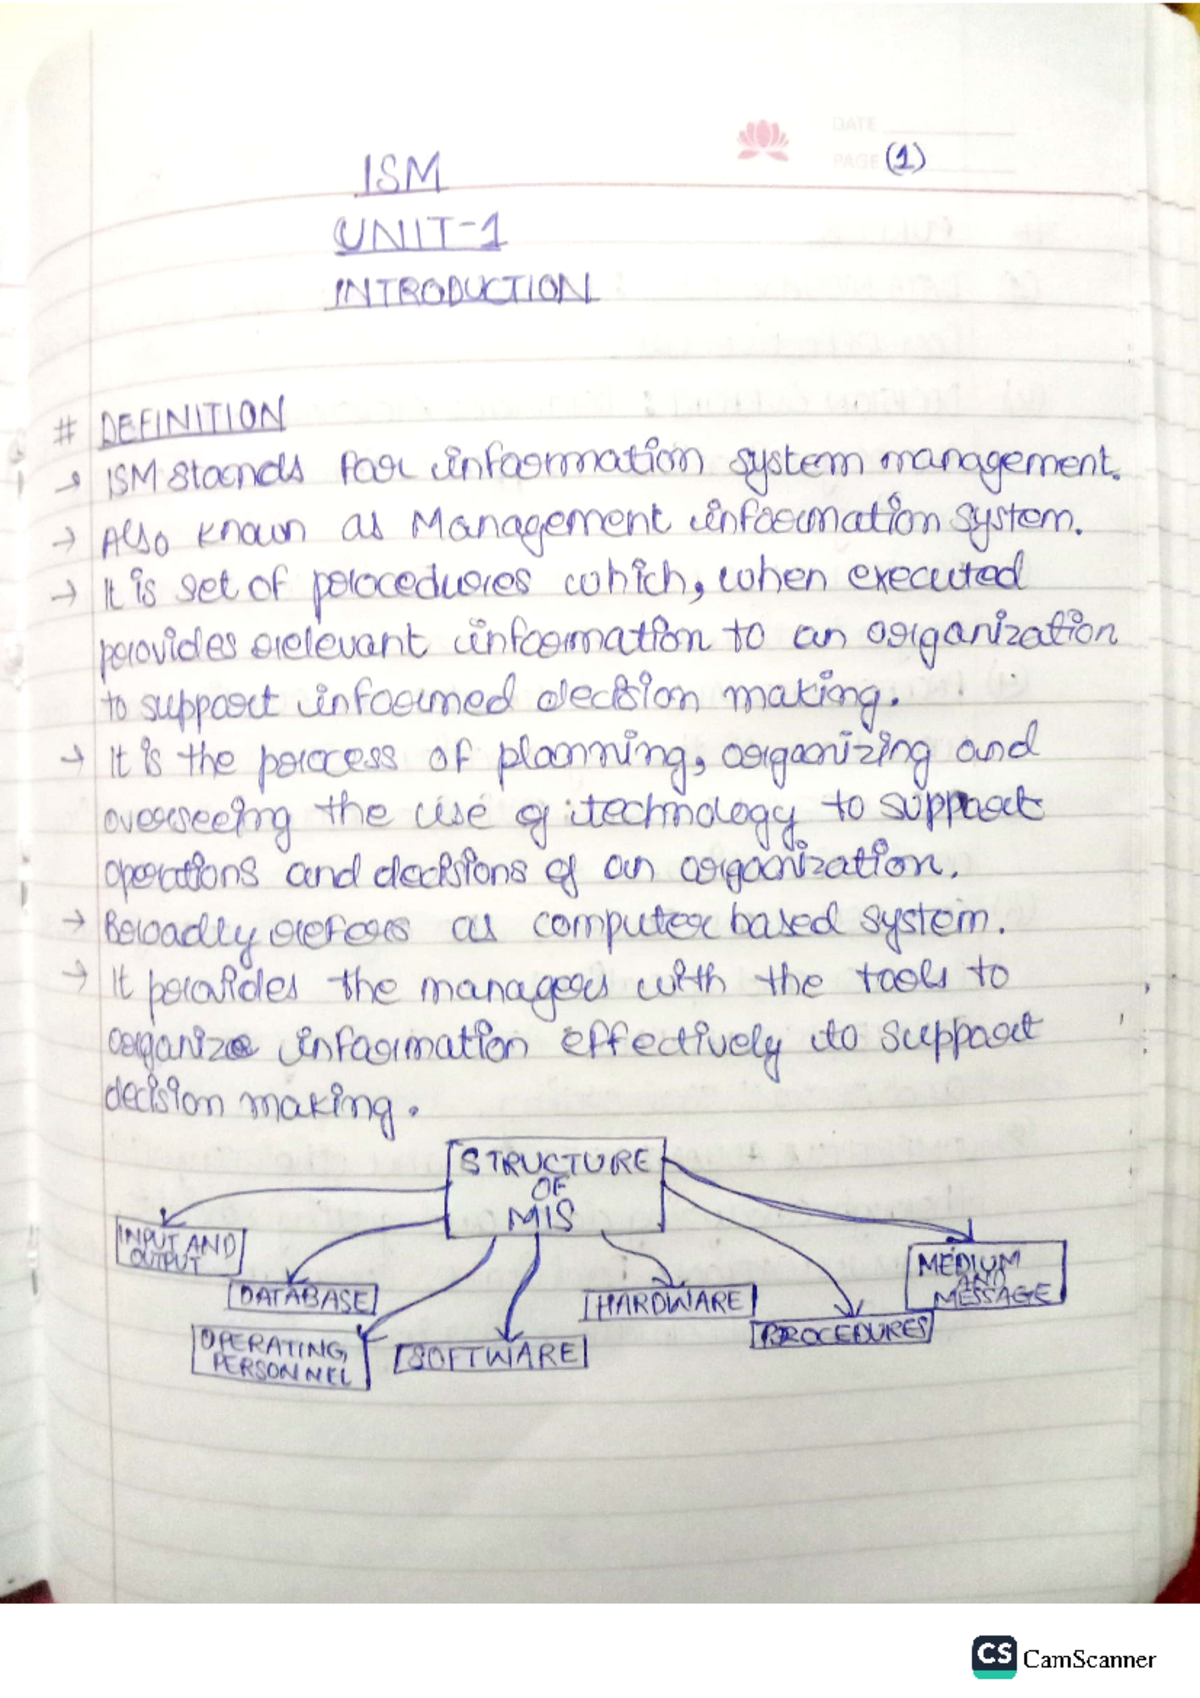 DATE
PAGE (1)
ISM
UNIT-1
INTRODUCTION
# DEFINITION
→ ISM stands for information system management.
→ Also known as Management information system.
→ It is set of procedures which, when executed
provides relevant information to an organization
to support informed decision making.
→ It is the process of planning, organizing and
overseeing the use of technology to support
operations and decisions of an organization.
→ Broadly refers as computer based system.
→ It provides the managers with the tools to
organize information effectively to support
decision making.
STRUCTURE
OF
MIS
INPUT AND
OUTPUT
DATABASE
OPERATING
PERSONNEL
SOFTWARE
HARDWARE
PROCEDURES
MEDIUM
AND
MESSAGE
CS CamScanner